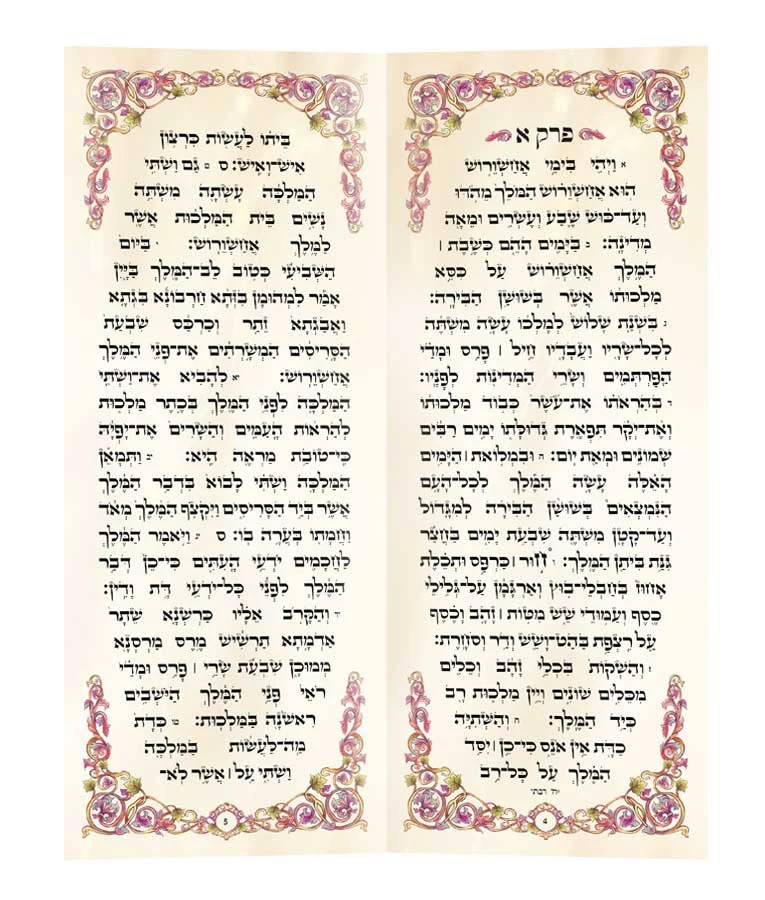 פרק א
א וַיְהִי בִּימֵי אֲחַשְׁוֵרוֹשׁ
הוּא אֲחַשְׁוֵרוֹשׁ הַמֹּלֵךְ מֵהֹדּוּ
וְעַד־כּוּשׁ שֶׁבַע וְעֶשְׂרִים וּמֵאָה
מְדִינָה: ב בַּיָּמִים הָהֵם כְּשֶׁבֶת ׀
הַמֶּלֶךְ אֲחַשְׁוֵרוֹשׁ עַל כִּסֵּא
מַלְכוּתוֹ אֲשֶׁר בְּשׁוּשַׁן הַבִּירָה:
ג בִּשְׁנַת שָׁלוֹשׁ לְמָלְכוֹ עָשָׂה מִשְׁתֶּה
לְכָל־שָׂרָיו וַעֲבָדָיו חֵיל ׀ פָּרַס וּמָדַי
הַפַּרְתְּמִים וְשָׂרֵי הַמְּדִינוֹת לְפָנָיו:
ד בְּהַרְאֹתוֹ אֶת־עֹשֶׁר כְּבוֹד מַלְכוּתוֹ
וְאֶת־יְקָר תִּפְאֶרֶת גְּדוּלָּתוֹ יָמִים רַבִּים
שְׁמוֹנִים וּמְאַת יוֹם: ה וּבִמְלוֹאת ׀ הַיָּמִים
הָאֵלֶּה עָשָׂה הַמֶּלֶךְ לְכָל־הָעָם
הַנִּמְצְאִים בְּשׁוּשַׁן הַבִּירָה לְמִגָּדוֹל
וְעַד־קָטָן מִשְׁתֶּה שִׁבְעַת יָמִים בַּחֲצַר
גִּנַּת בִּיתַן הַמֶּלֶךְ: ו חוּר ׀ כַּרְפַּס וּתְכֵלֶת
אָחוּז בְּחַבְלֵי־בוּץ וְאַרְגָּמָן עַל־גְּלִילֵי
כֶסֶף וְעַמּוּדֵי שֵׁשׁ מִטּוֹת ׀ זָהָב וָכֶסֶף
עַל רִצְפַת בַּהַט־וָשֵׁשׁ וְדַר וְסֹחָרֶת:
ז וְהַשְׁקוֹת בִּכְלֵי זָהָב וְכֵלִים
מִכֵּלִים שׁוֹנִים וְיֵין מַלְכוּת רָב
כְּיַד הַמֶּלֶךְ: ח וְהַשְּׁתִיָּה
כַדָּת אֵין אֹנֵס כִּי־כֵן ׀ יִסַּד
הַמֶּלֶךְ עַל כָּל־רַב
יח' רבתי
4
בֵּיתוֹ לַעֲשׂוֹת כִּרְצוֹן
אִישׁ־וָאִישׁ: ס ט גַּם וַשְׁתִּי
הַמַּלְכָּה עָשְׂתָה מִשְׁתֵּה
נָשִׁים בֵּית הַמַּלְכוּת אֲשֶׁר
לַמֶּלֶךְ אֲחַשְׁוֵרוֹשׁ: י בַּיּוֹם
הַשְּׁבִיעִי כְּטוֹב לֵב־הַמֶּלֶךְ בַּיָּיִן
אָמַר לִמְהוּמָן בִּזְּתָא חַרְבוֹנָא בִּגְתָא
וַאֲבַגְתָא זֵתַר וְכַרְכַּס שִׁבְעַת
הַסָּרִיסִים הַמְשָׁרְתִים אֶת־פְּנֵי הַמֶּלֶךְ
אֲחַשְׁוֵרוֹשׁ: יא לְהָבִיא אֶת־וַשְׁתִּי
הַמַּלְכָּה לִפְנֵי הַמֶּלֶךְ בְּכֶתֶר מַלְכוּת
לְהַרְאוֹת הָעַמִּים וְהַשָּׂרִים אֶת־יָפְיָהּ
כִּי־טוֹבַת מַרְאֶה הִיא: יב וַתְּמָאֵן
הַמַּלְכָּה וַשְׁתִּי לָבוֹא בִּדְבַר הַמֶּלֶךְ
אֲשֶׁר בְּיַד הַסָּרִיסִים וַיִּקְצֹף הַמֶּלֶךְ מְאֹד
וַחֲמָתוֹ בָּעֲרָה בוֹ: ס יג וַיֹּאמֶר הַמֶּלֶךְ
לַחֲכָמִים יֹדְעֵי הָעִתִּים כִּי־כֵן דְּבַר
הַמֶּלֶךְ לִפְנֵי כָּל־יֹדְעֵי דָּת וָדִין:
יד וְהַקָּרֹב אֵלָיו כַּרְשְׁנָא שֵׁתָר
אַדְמָתָא תַרְשִׁישׁ מֶרֶס מַרְסְנָא
מְמוּכָן שִׁבְעַת שָׂרֵי ׀ פָּרַס וּמָדַי
רֹאֵי פְּנֵי הַמֶּלֶךְ הַיֹּשְׁבִים
רִאשֹׁנָה בַּמַּלְכוּת: טו כְּדָת
מַה־לַּעֲשׂוֹת בַּמַּלְכָּה
וַשְׁתִּי עַל ׀ אֲשֶׁר לֹא־
5